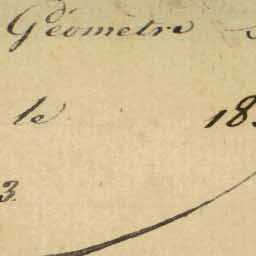 Géomètre
le 18
3